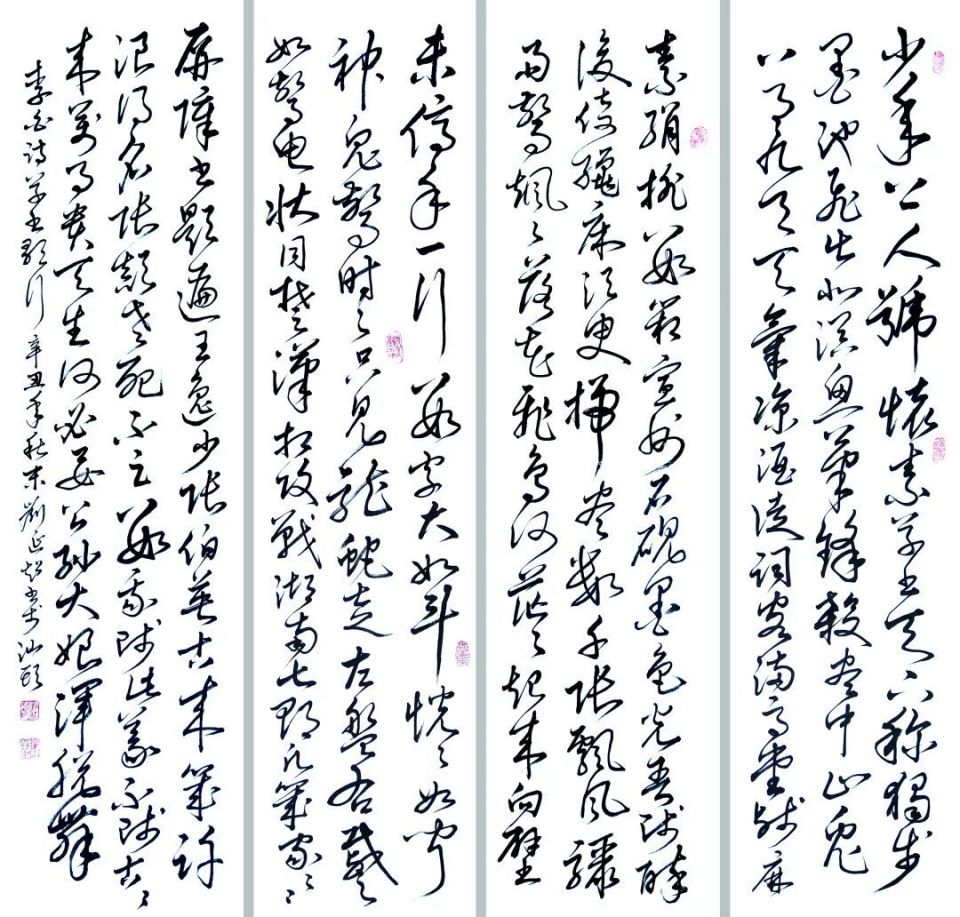 少年上人號懷素草書天下稱獨步
墨池飛出北溟魚筆鋒殺盡中山兔
八月九月天氣凉酒徒詞客滿高堂箋麻
素絹排數箱宣州石硯墨色光吾師醉
後倚繩床須臾掃盡數千張飄風驟
雨驚颯颯落花飛雪何茫茫起來向壁
未停手一行數字大如斗恍恍如聞
神鬼驚時時只見龍蛇走左盤右蹙
如驚電狀同楚漢相攻戰湖南七郡凡幾家家家
屏障書題遍王逸少張伯英古來幾許
浪得名張顛老死不足數我師此義不師古古
來萬事貴天生何必要公孫大娘渾脫舞
李白詩草書歌行 辛丑年秋末劉延超書於汕頭